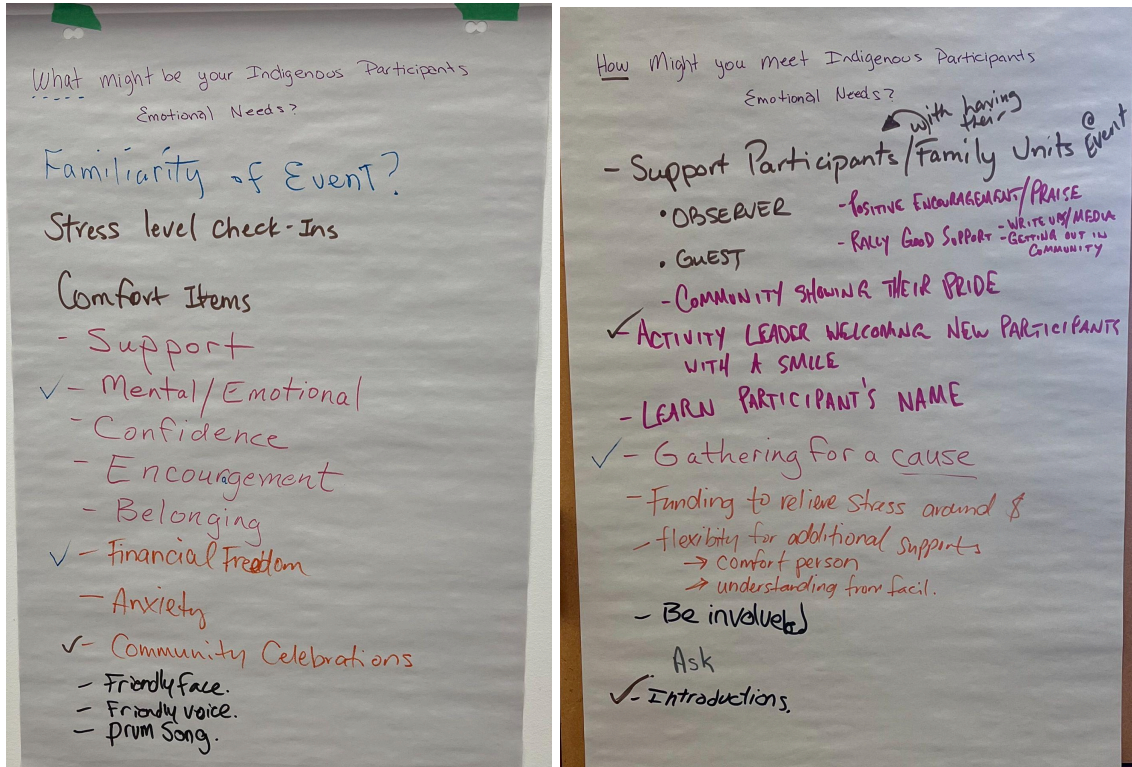 What might be your Indigenous Participants
Emotional Needs?
Familiarity of Event?
Stress level check-Ins
Comfort Items
- Support
✓ - Mental/Emotional
- Confidence
- Encouragement
- Belonging
✓ - Financial Freedom
- Anxiety
✓ - Community Celebrations
- Friendly face.
- Friendly voice.
- Drum Song.
How Might you meet Indigenous Participants
Emotional Needs?
with having
their
- Support Participants/Family Units @ Event
• OBSERVER
• GUEST
- POSITIVE ENCOURAGEMENT/PRAISE
- RALLY GOOD SUPPORT - WRITE UPS/MEDIA
- GETTING OUT IN
COMMUNITY
- COMMUNITY SHOWING THEIR PRIDE
✓ - ACTIVITY LEADER WELCOMING NEW PARTICIPANTS
WITH A SMILE
- LEARN PARTICIPANT'S NAME
✓ - Gathering for a cause
- Funding to relieve stress around $
- flexibity for additional supports
→ comfort person
→ understanding from facil.
- Be involved
Ask
✓ - Introductions.